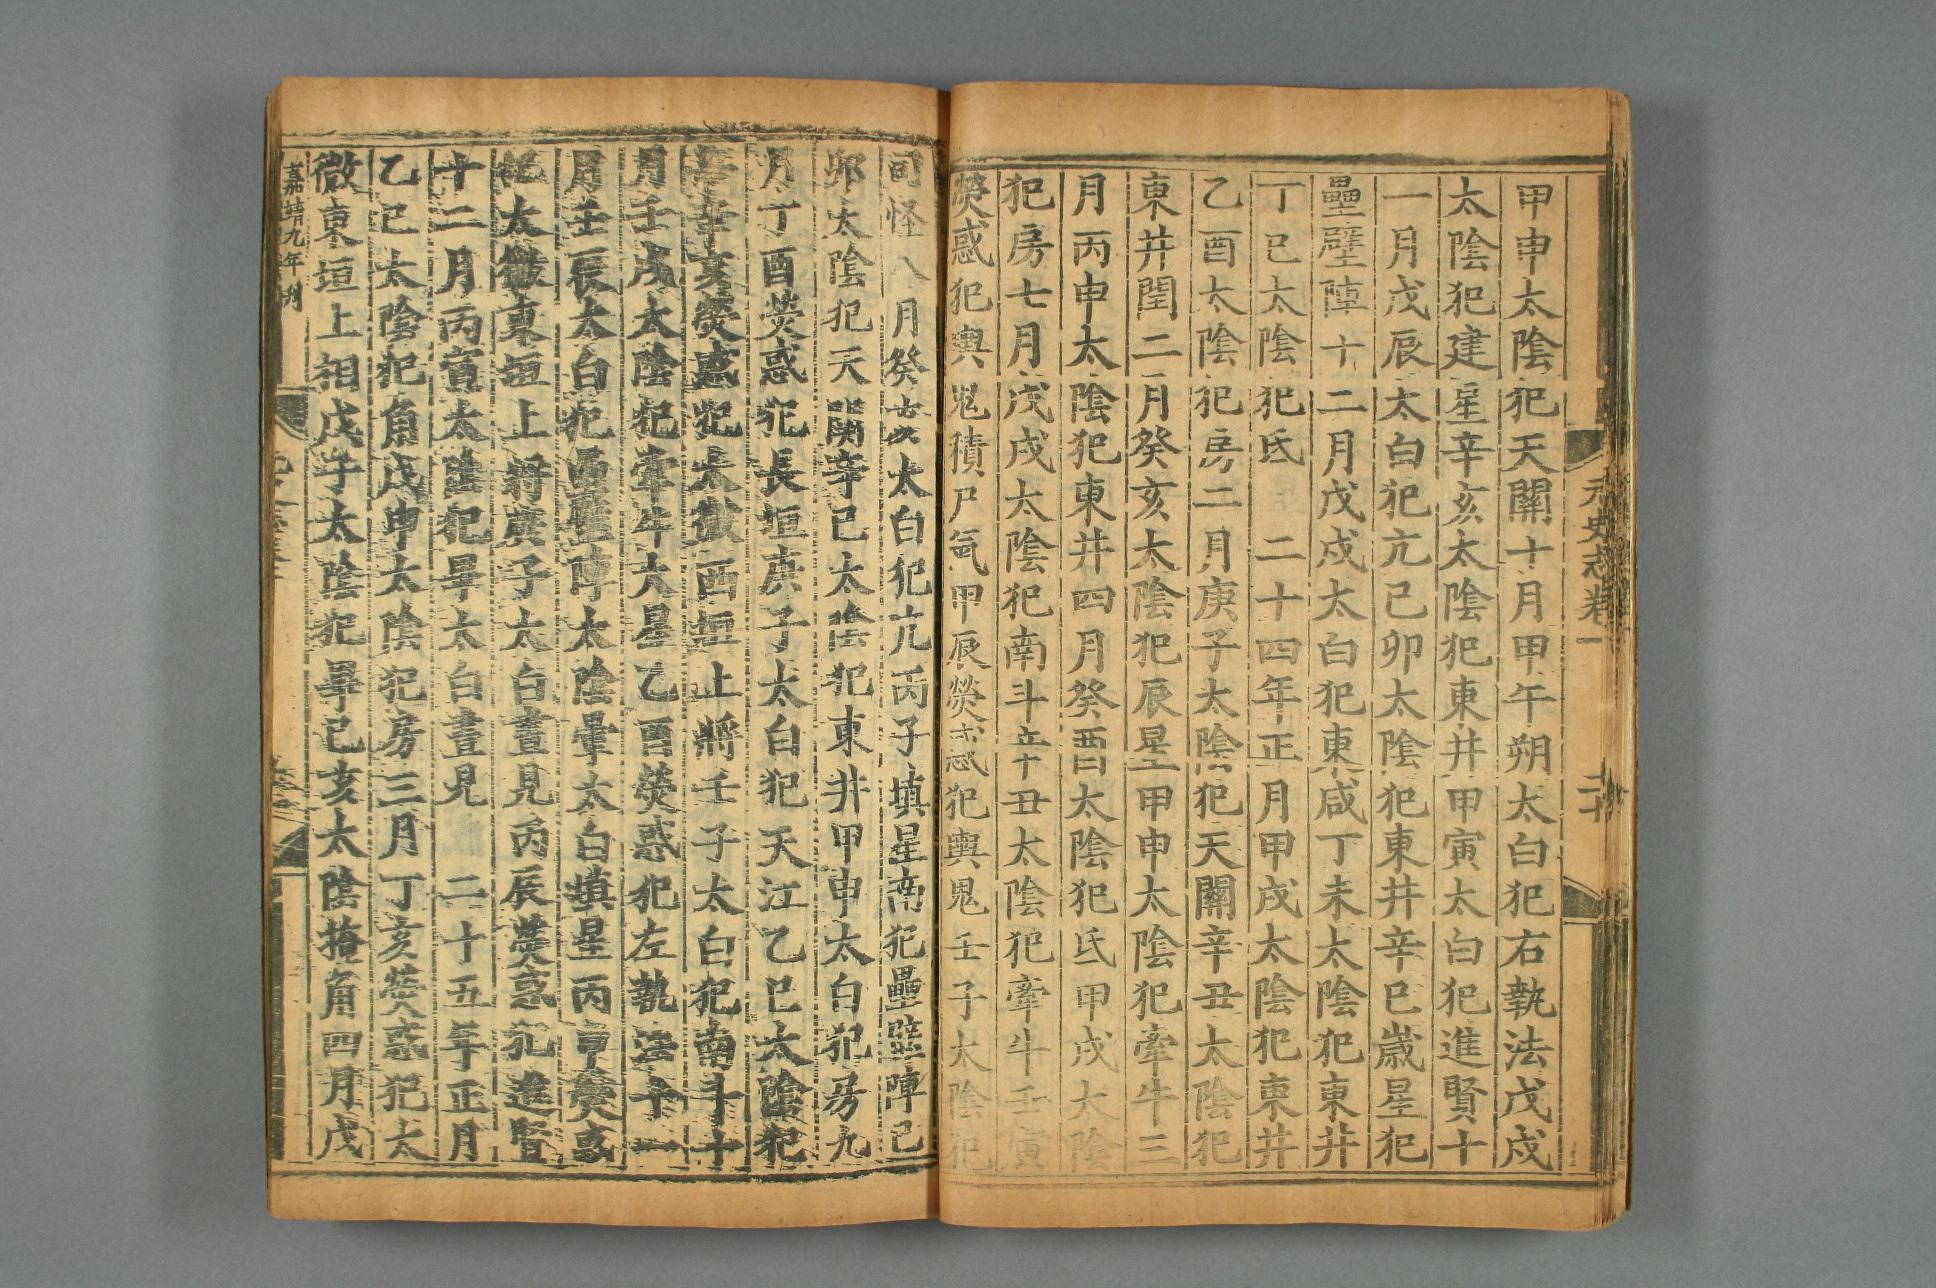 元史志卷一
二十
甲申太陰犯天關十月甲午朔太白犯右執法戊戌
太陰犯建星辛亥太陰犯東井甲寅太白犯進賢十
一月戊辰太白犯亢己卯太陰犯東井辛巳歲星犯
壘壁陣十二月戊戌太白犯東咸丁未太陰犯東井
丁巳太陰犯氐　二十四年正月甲戌太陰犯東井
乙酉太陰犯房二月庚子太陰犯天關辛丑太陰犯
東井閏二月癸亥太陰犯辰星甲申太陰犯牽牛三
月丙申太陰犯東井四月癸酉太陰犯氐甲戌太陰
犯房七月戊戌太陰犯南斗辛丑太陰犯牽牛壬寅
熒惑犯輿鬼積尸氣甲辰熒惑犯輿鬼壬子太陰犯
司怪八月癸亥太白犯亢丙子填星南犯壘壁陣己
卯太陰犯天關辛巳太陰犯東井甲申太白犯房九
月丁酉熒惑犯長垣庚子太白犯天江乙巳太陰犯
辛亥熒惑犯太微西垣上將壬子太白犯南斗十
月壬戌太陰犯牽牛大星乙酉熒惑犯左執法十一
月壬辰太白犯壘壁陣太陰暈太白填星丙申熒惑
犯太微東垣上將庚子太白晝見丙辰熒惑犯進賢
十二月丙寅太陰犯畢太白晝見　二十五年正月
乙巳太陰犯角戊申太陰犯房三月丁亥熒惑犯太
微東垣上相戊子太陰犯畢己亥太陰掩角四月戊
嘉靖九年刊